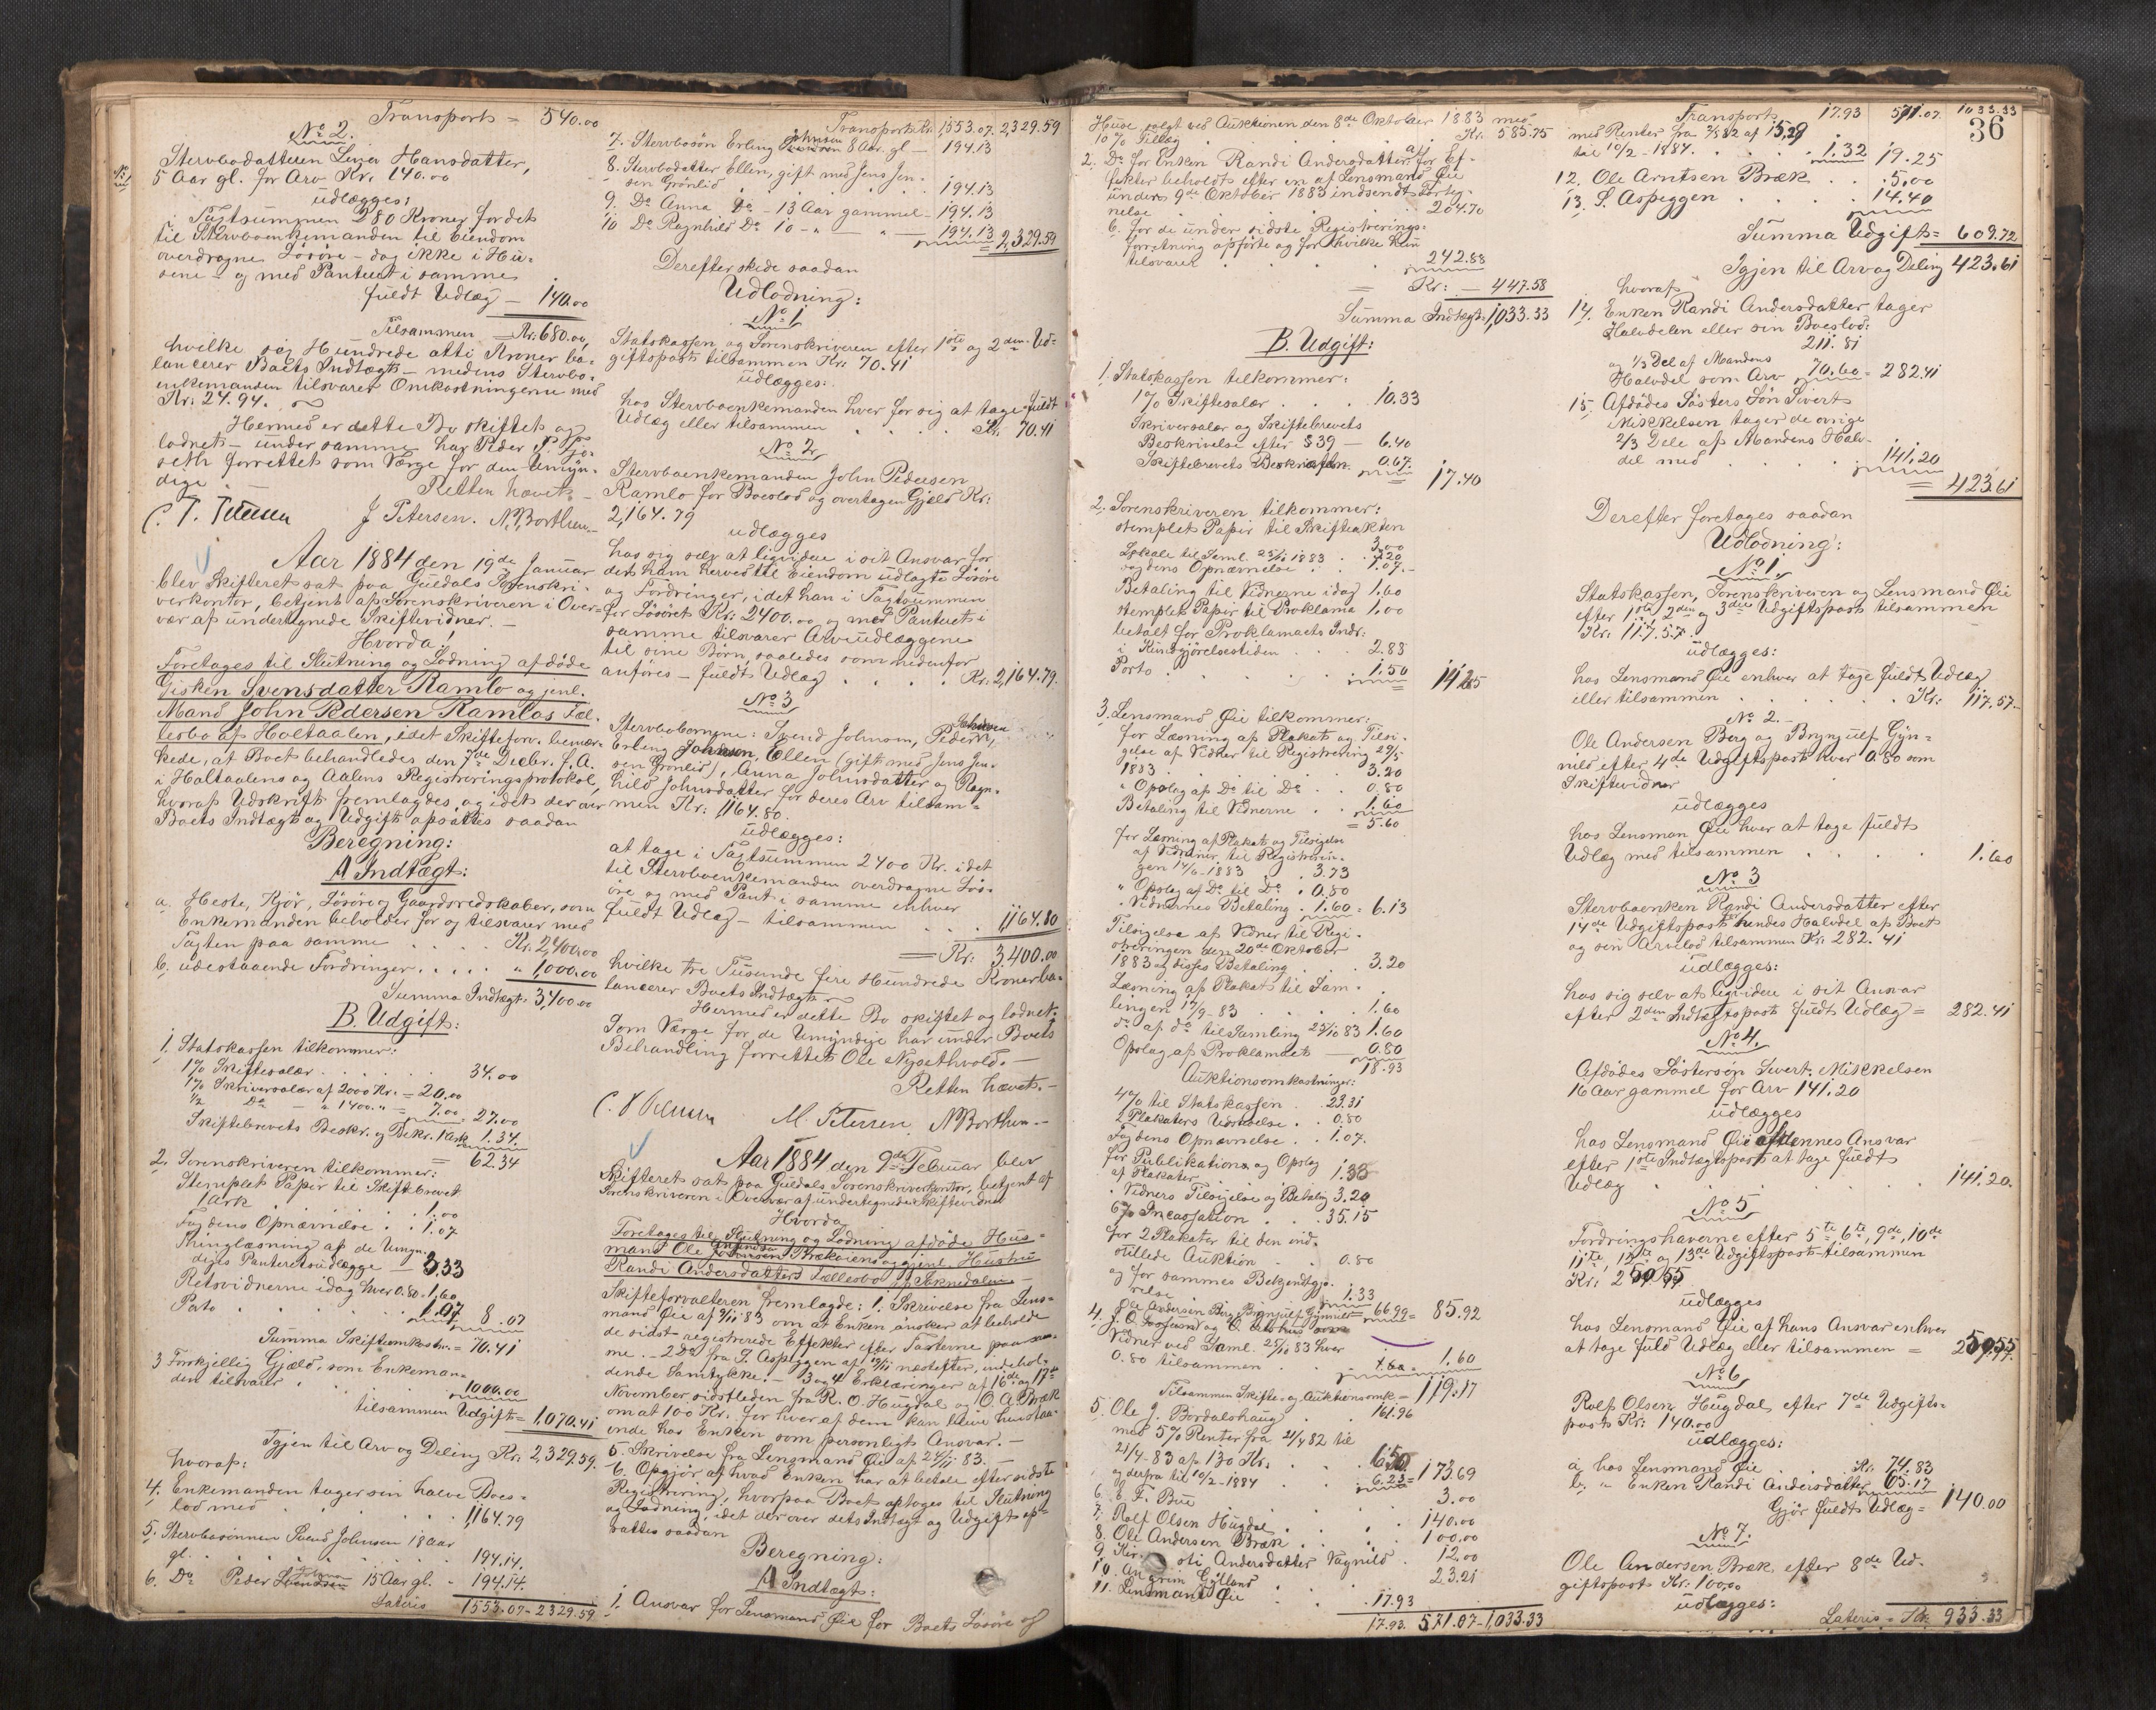 Transport = 540.00
No 2.
Stervbodatteren Lina Hansdatter,
5 Aar gl. for Arv Kr. 140.00
udlægges:
i Tagtsummen 280 Kroner for det
til Stervboenkemanden til Eiendom
overdragne Løsøre – dog ikke i Hu-
sene – og med Panteret i samme
fuldt Udlæg – 140.00
Tilsammen – Kr: 680.00,
hvilke sex Hundrede otti Kroner ba-
lancerer Boets Indtægt – medens Stervbo-
enkemanden tilsvarer Omkostningerne med
Kr. 24.94.
Hermed er dette Bo skiftet og
lodnet – under samme har Peder P.
forrettet som Værge for den Umyn-
dige.
Retten hævet –
J Petersen. N. Borthen
Aar 1884 den 19de Januar
blev Skifteret sat paa Guldals Sorenskri-
verkontor, betjent af Sorenskriveren i Over-
vær af undertegnede Skiftevidner. –
Hvorda!
Foretages til Slutning og Lodning afdøde
Gisken Svensdatter Ramlo og jenl.
Mand John Pedersen Ramlos Fæl-
lesbo af Holtaalen, idet Skifteforv. bemær-
kede, at Boet behandledes den 7de Decbr. f. A.
i Holtaalens og Aalens Registreringsprotokol,
hvoraf Udskrift fremlagdes, og idet der over
Boets Indtægt og Udgift opsattes saadan
Beregning:
A Indtægt:
a. Heste, Kjør, Løsøre og Gaardsredskaber, som
Enkemanden beholder for og tilsvarer med
Tagten paa samme . . . . Kr. 2,400.00
b. udestaaende Fordringer . . . . . " 1,000.00
Summa Indtægt 3,400.00
B. Udgift:
1. Statskassen tilkommer:
1% Skiftesalær . . . . . 34.00
1% Skriversalær af 2000 Kr. = 20.00
1/2 Do – " 1400 " = 7.00 = 27.00
Skiftebrevets Beskr. og Bekr. 1 Ark 1.34.
= 62.34
2. Sorenskriveren tilkommer:
Stemplet Papir til Skiftebrevet
1 Ark . . . . . 1.00
Fogdens Opnævnelse . . 1.07
Thinglæsning af de Umyn-
diges Panteretsudlægge – 3.33
Retsvidnerne idag hver 0.80 = 1.60
Porto . . . . 1.07 8.07
Summa Skifteomkostn. = 70.41
3 Forskjellig Gjæld, som Enkeman-
den tilsvarer . . . . 1000.00
tilsammen Udgift = 1,070.41
Igjen til Arv og Deling Kr. 2,329.59.
hvoraf:
4. Enkemanden tager sin halve Boes-
lod med . . . . . . 1,164.79
5. Stervbosønnen Svend Johnsen 18 Aar
gl. . . . . . . 194.14.
6. Do Peder Johnsen 15 Aar gl. . 194.14.
Lateris 1553.07 - 2329.59
Transport Kr. 1,553.07. 2,329.59
7. Stervbosøn Erling Johnsen 8 Aar. gl – 194.13
8. Stervbodatter Ellen, gift med Jens Jen-
sen Grønlid . . . . . 194.13
9. Do Anna Do – 13 Aar gammel – 194.13
10 Do Ragnhild Do 10 – " – " – 194.13
= 2,329.59
Derefter skede saadan
Udlodning:
No 1
Statskassen og Sorenskriveren efter 1ste og 2den Ud-
giftspost tilsammen Kr. 70.41
udlægges:
hos Stervboenkemanden hver for sig at tage fuldt
Udlæg eller tilsammen . . . . . Kr. 70.41
No 2
Stervboenkemanden John Pedersen
Ramlo for Boeslod og overtagen Gjæld Kr:
2,164.79
udlægges
hos sig selv at liqvidere i sit Ansvar for
den ham herved til Eiendom udlagte Løsøre
og Fordringer, idet han i Tagtsummen
for Løsøret Kr: 2400.00 og med Panteret i
samme tilsvarer Arveudlæggene
til sine Børn, saaledes som nedenfor
anføres – fuldt Udlæg . . . . . Kr. 2,164.79.
No 3
Stervbobørnene: Svend Johnsen, Peder Johnsen,
Erling Johnsen, Ellen (gift med Jens Jen-
sen Grønlid), Anna Johnsdatter og Ragn-
hild Johnsdatter for deres Arv tilsam-
men Kr: 1,164.80.
udlægges:
at tage i Tagtsummen 2400 Kr. i det
til Stervboenkemanden overdragne Løs-
øre og med Pant i samme enhver
fuldt Udlæg – tilsammen . . . 1,164.80
= Kr: 3.400.00
hvilke tre Tusende fire Hundrede Kroner ba-
lancerer Boets Indtægt.
Hermed er dette Bo skiftet og lodnet;
Som Værge for de Umyndige har under Boets
Behandling forrettet Ole Nygethvold. –
Retten hævet. –
M. Petersen N Borthen. –
Aar 1884 den 9de Februar blev
Skifteret sat paa Guldals Sorenskriverkontor, betjent af
Sorenskriveren i Overvær af undertegnede Skiftevidner
Hvorda
Foretages til Slutning og Lodning afdøde Hus-
mand Ole Brækøiens og gjenl. Hustru
Randi Andersdatters Fællesbo af Soknedalen. –
Skifteforvalteren fremlagde: 1. Skrivelse fra Lens-
mand Øie af 9/11 83 om at Enken ønsker at beholde
de sidst registrerede Effekter efter Taxterne paa sam-
me. – 2. Do fra S. Aspeggen af 12/11 næstefter, indehol-
dende Samtykke. – 3 og 4 Erklæringer af 16de og 17de
November sidstleden fra R. O. Hugdal og O. A. Bræk
om at 100 Kr. for hver af dem kan blive henstaa-
ende hos Enken som personligt Ansvar. –
5. Skrivelse fra Lensmand Øie af 24/11 83. –
6. Opgjør af hvad Enken har at betale efter sidste
Registrering, hvorpaa Boet optoges til Slutning
og Lodning, idet der over dets Indtægt og Udgift op-
sattes saadan
Beregning:
A Indtægt:
1. Ansvar for Lensmand Øie for Boets Løsøre og
Huse solgt ved Auktionen den 8de Oktober 1883 med
10% Tillæg . . . . . . Kr. 585.75
2. Do for Enken Randi Andersdatter: a. for Ef-
fekter beholdt efter en af Lensmand Øie
under 9de Oktober 1883 indsendt Forteg-
nelse . . . . . . 204.70
b. for de under sidste Registrerings-
forretning opførte og for hvilke hun
tilsvarer . . . . . 242.88
= Kr: – 447.58
Summa Indtægt: 1,033.33
B. Udgift:
1. Statskassen tilkommer:
1% Skiftesalær . . . 10.33
Skriversalær og Skiftebrevets
Beskrivelse efter § 39 – 6.40
Skiftebrevets Bekræfteln. 0.67.
= 17.40
2. Sorenskriveren tilkommer:
stemplet Papir til Skifteakten
3.00
Lokale til Saml. 25/10 1883 . . 1.20
Fogdens Opnævnelse . . 1.07. –
Betaling til Vidnerne idag 1.60
stemplet Papir til Proklama 1.00
betalt for Proklamaets Indr:
i Kundgjørelsestiden . . . 2.88
Porto . . . . . 1.50 14.25
3. Lensmand Øie tilkommer:
for Læsning af Plakat og Tilsi-
gelse af Vidner til Registrering 29/5
1883 . . . . . 3.20
" Opslag af Do til Do . . 0.80
Betaling til Vidnerne . . 1.60
= 5.60
for Læsning af Plakat og Tilsigelse
af Vidner til Registrerin-
gen 14/6 - 1883 . 3.73
" Opslag af Do til Do . 0.80
" Vidnernes Betaling . 1.60 = 6.13
Tilsigelse af Vidner til Regi-
streringen den 20de Oktober
1883 og disses Betaling . . . 3.20
Læsning af Plakat til Sam-
lingen 17/9 - 83 . . . . 1.60
do af do til Samling 25/10 83 1.60
Opslag af Proklamaet – 0.80
18.93
Auktionsomkostninger:
4% til Statskassen . 23.31
2 Plakaters Udstedelse . . 0.80
Fogdens Opnævnelse . . 1.07.
for Publikation og Opslag
af Plakater . . . 1.33
" Vidners Tilsigelse og Betaling 3.20
6% Incassation . . . 35.15
for 2 Plakater til den ind-
stillede Auktion . . 0.80
og for sammes Bekjendtgjø-
relse . . . . 1.33
= 66.99 = 85.92
4. Ole Andersen Berg, Brynjulf Gynnild
Vidner ved Saml. 25/10 83 hver
0.80 tilsammen . . . . 1.60
Tilsammen Skifte- og Auktionsomk = 119.17
5. Ole J. Bordalshaug . . 161.96
med 5% Renter fra 21/4 82 til
21/4 - 83 af 130 Kr. . . . 6.50
og derfra til 10/2 - 1884 . . 6.23 = 173.69
6. E F. Bue . . . . 3.00
7. Rolf Olsen Hugdal . . . . 140.00
8. Ole Andersen Bræk . . . . 100.00
9. Andersdatter Vagnild . 12.00
10. Gylland . . . 23.21
11. Lensmand Øie . . . 17.93
17.93. 571.07 - 1,033.33
36
Transport 17.93 571.07. 1033.33
med Renter fra 7/5 82 af 15.29
til 10/2 - 1884. . . . 1.32 19.25
12. Ole Arntsen Bræk . . . 5.00
13. S. Aspeggen . . . . 14.40
Summa Udgift = 609.72
Igjen til Arv og Deling 423.61
hvoraf
14. Enken Randi Andersdatter tager
Halvdelen eller sin Boeslod:
211.81
og 1/3 Del af Mandens
Halvdel som Arv 70.60 = 282.41
15. Afdødes Søsters Søn Sivert
Mikkelsen tager de øvrige
2/3 Dele af Mandens Halv-
del med . . . . 141.20
= 423.61
Derefter foretages saadan
Udlodning:
No 1.
Statskassen, Sorenskriveren og Lensmand Øie
efter 1ste, 2den og 3die Udgiftspost tilsammen
Kr: 117.57.
udlægges:
hos Lensmand Øie enhver at tage fuldt Udlæg
eller tilsammen . . . . . . Kr: 117.57 –
No 2. –
Ole Andersen Berg og Brynjulf Gyn-
nild efter 4de Udgiftspost hver 0.80 som
Skiftevidner
udlægges
hos Lensman Øie hver at tage fuldt
Udlæg med tilsammen . . . . . 1.60
No 3
Stervboenken Randi Andersdatter efter
14de Udgiftspost for hendes Halvdel af Boet
og sin Arvelod tilsammen Kr: 282.41
udlægges:
hos sig selv at liqvidere i sit Ansvar
efter 2den Indtægtspost fuldt Udlæg = 282.41
No 4.
Afdødes Søstersøn Sivert Mikkelsen
16 Aar gammel for Arv 141.20
udlægges
hos Lensmand Øie af dennes Ansvar
efter 1ste Indtægtspost at tage fuldt
Udlæg . . . . . . 141.20.
No 5
Fordringshaverne efter 5te, 6te, 9de, 10de
11te, 12te og 13de Udgiftspost tilsammen
Kr: 250.55
udlægges
hos Lensmand Øie af hans Ansvar enhver
at tage fuld Udlæg eller tilsammen = 250.55
No 6
Rolf Olsen Hugdal efter 7de Udgifts-
post Kr: 140.00
udlægges:
a. hos Lensmand Øie . . Kr. 74.83
b. " Enken Randi Andersdatter 65.17
Gjør fuldt Udlæg = 140.00
No 7.
Ole Andersen Bræk, efter 8de Ud-
giftspost Kr: 100.00
udlægges:
Lateris = Kr. 933.33